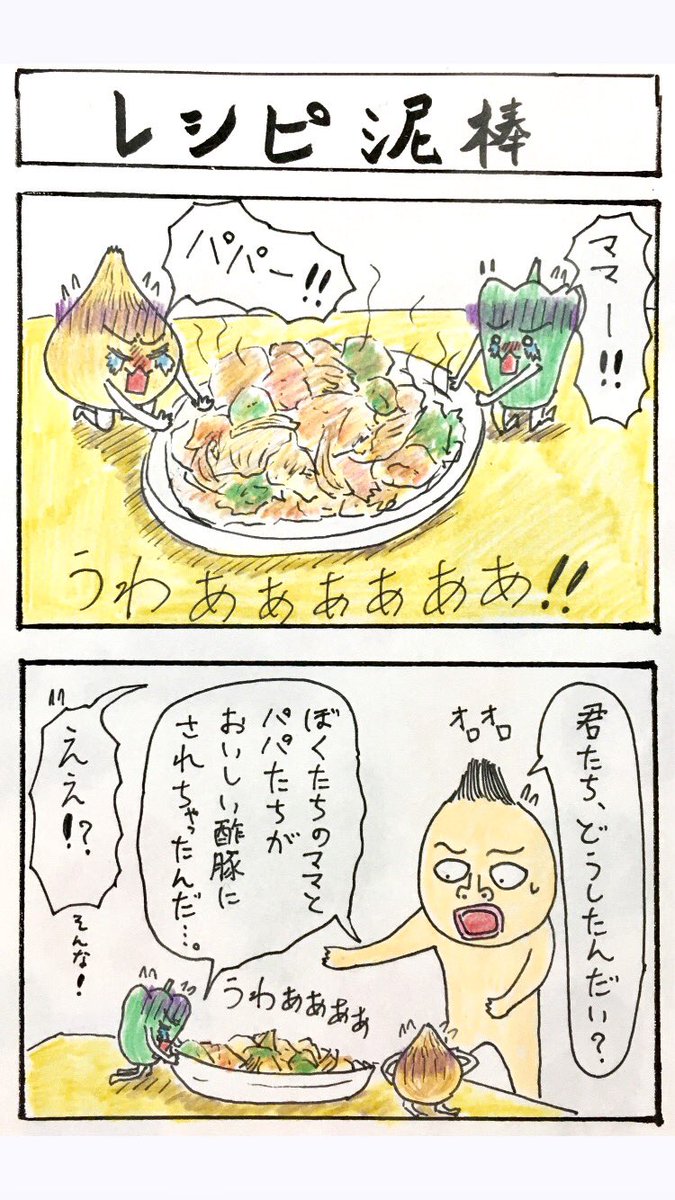 レシピ泥棒
ママー!!
パパー!!
うわぁぁぁぁぁぁ!!
君たち、どうしたんだい?
オロオロ
ぼくたちのママと
パパたちが
おいしい酢豚に
されちゃったんだ…。
うわぁぁぁぁ
ええ!?
そんな!